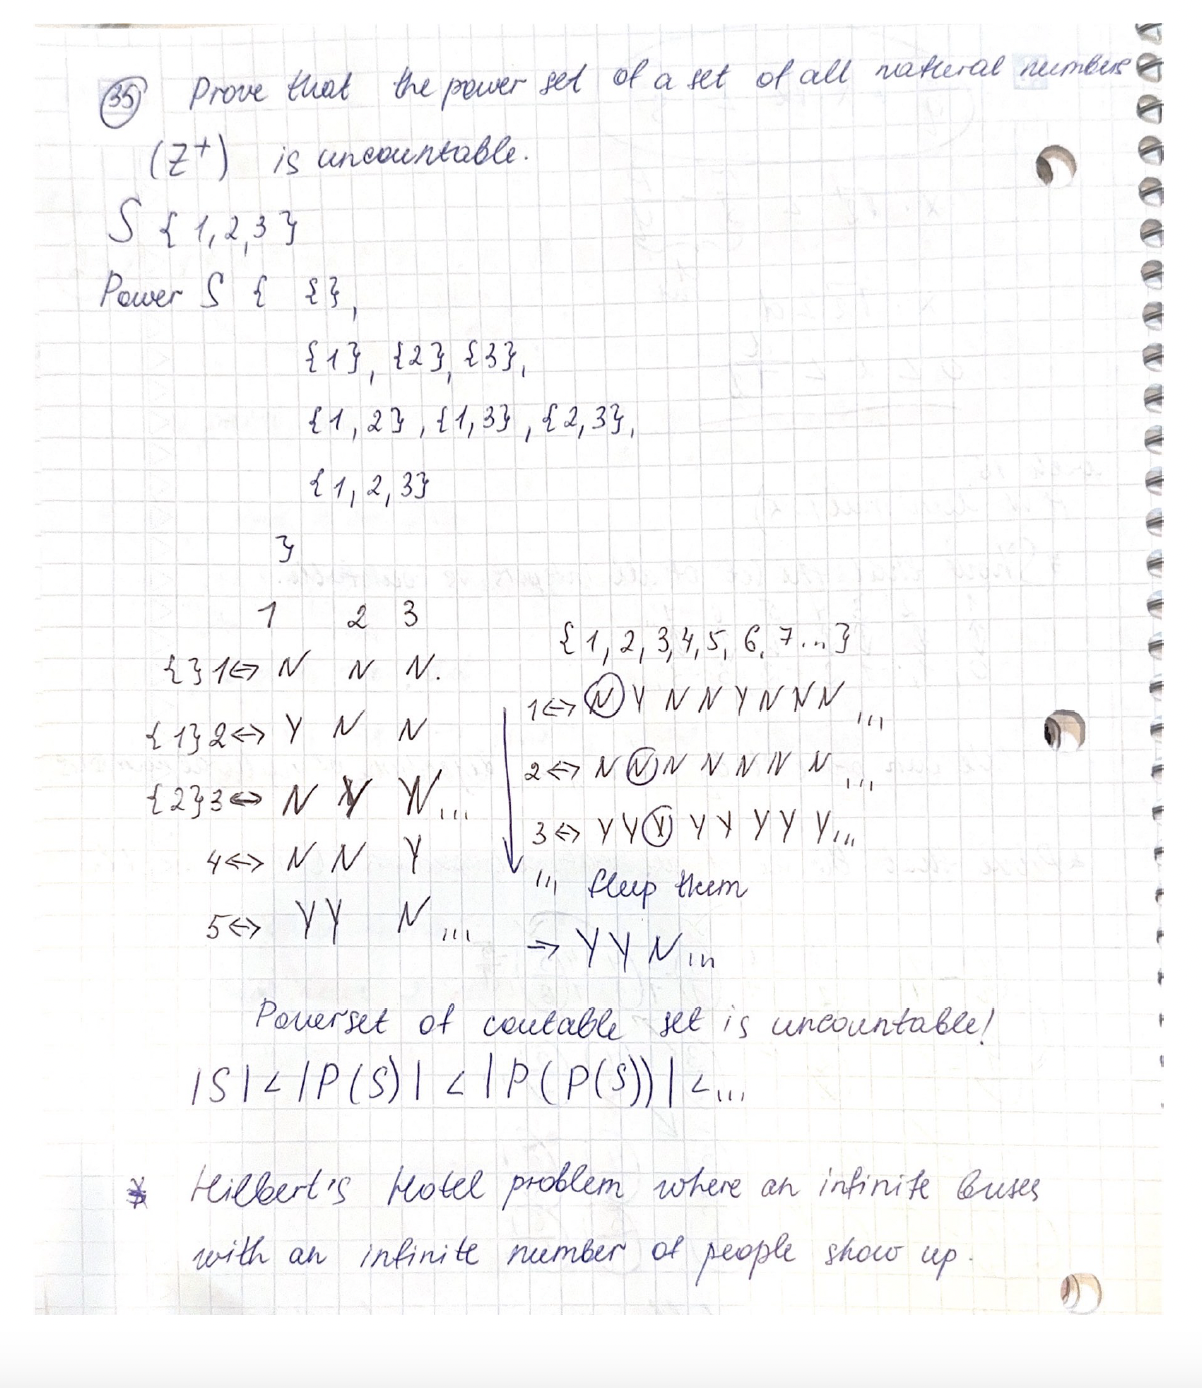 35 Prove that the power set of a set of all natural numbers
(Z+) is uncountable.
S { 1, 2, 3 }
Power S { {},
{1}, {2}, {3},
{1, 2}, {1, 3}, {2, 3},
{1, 2, 3}
}
1 2 3
{} 1 <-> N N N.
{1} 2 <-> Y N N
{2} 3 <-> N Y N...
4 <-> N N Y
5 <-> Y Y N ...
{ 1, 2, 3, 4, 5, 6, 7... }
1 <-> N Y N N Y N N N ...
2 <-> N N N N N N N ...
3 <-> Y Y Y Y Y Y Y Y...
... fleep them
=> Y Y N ...
Powerset of coutable set is uncountable!
|S| < |P(S)| < |P(P(S))| < ...
* Hilbert's Hotel problem where an infinite buses
with an infinite number of people show up.